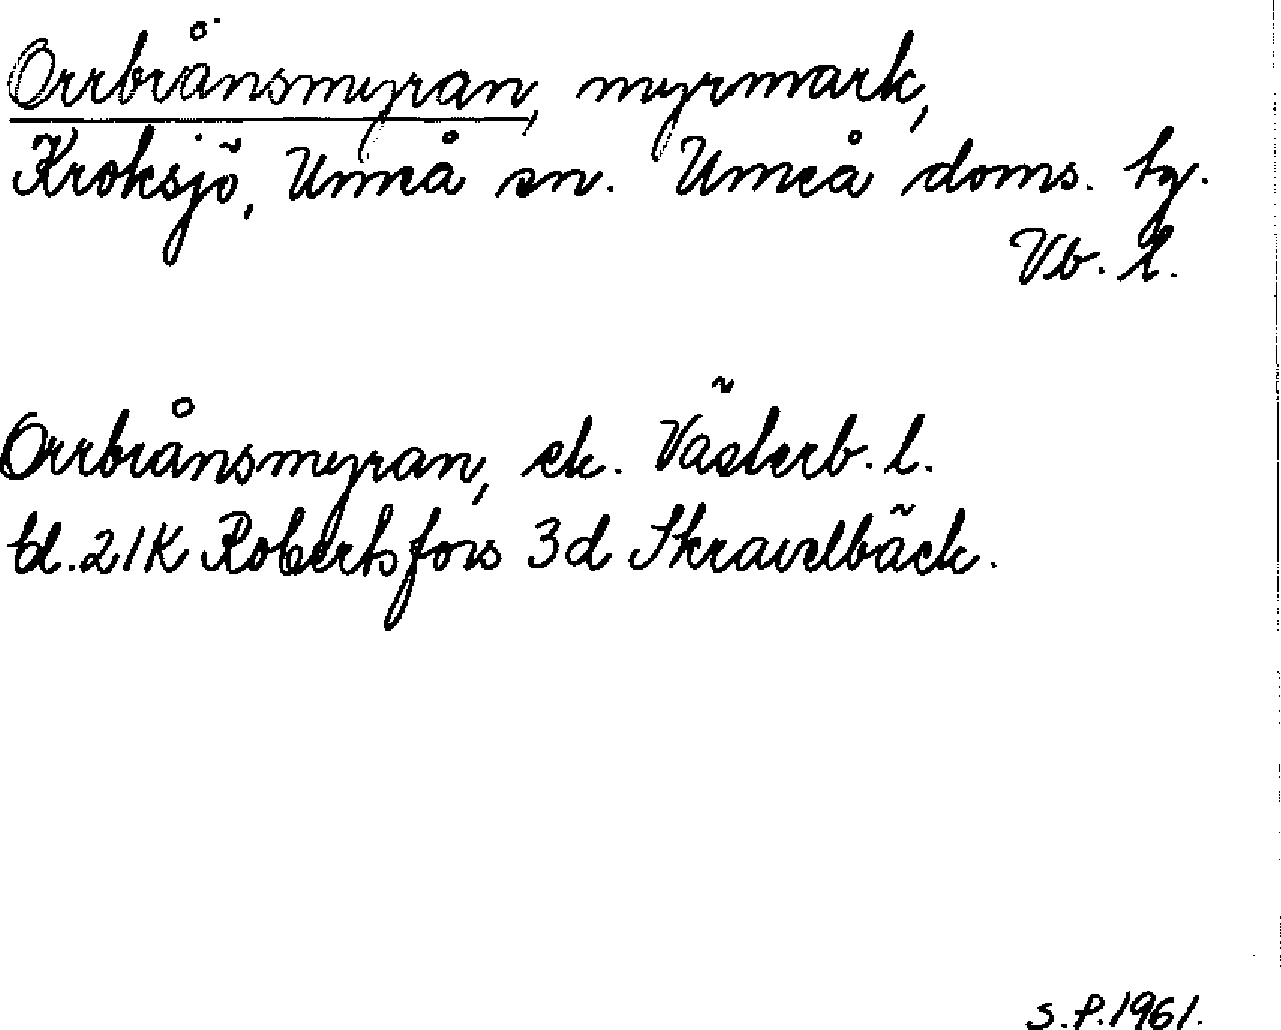 Orrbrånsmyran, myrmark,
Kroksjö, Umeå sn. Umeå doms. tg.
Vb. l.
Orrbrånsmyran, ek. Västerb. l.
bl. 21K Robertsfors 3d Skravelbäck.
S.P. 1961.